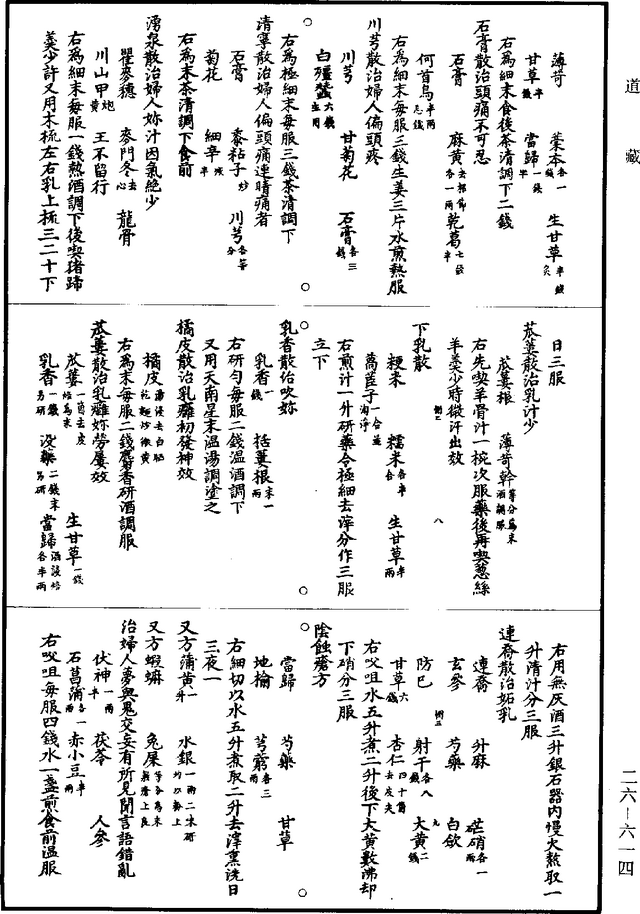 道藏
薄苛　藁本各一錢　生甘草半錢炙
甘草半錢　當歸一錢半
右為細末食後茶清調下二錢
石膏散治頭痛不可忍
石膏　麻黃去根節各一兩　乾葛七錢半
何首烏半兩
右為細末每服三錢生姜三片水煎熱服
川芎散治婦人偏頭疼
川芎　甘菊花　石膏各三錢
白殭蠶六錢生用
右為極細末每服三錢茶清調下
清寧散治婦人偏頭痛連睛痛者
石膏　黍粘子炒　川芎各等分
菊花　細辛減半
右為末茶清調下食前
湧泉散治婦人妳汁因氣絕少
瞿麥穗　麥門冬去心　龍骨
川山甲炮黃　王不留行
右為細末每服一錢熱酒調下後喫猪蹄
羹少許又用木梳左右乳上梳三二十下
日三服
苽蔞散治乳汁少
苽蔞根　薄苛幹等分為末酒調服
右先喫羊骨汁一椀次服藥後再喫葱絲
羊羹少時縱汗出效
下乳散
粳米　糯米各半合　生甘草半兩
萵苣子一合並淘淨
右煎汁一升研藥令極細去滓分作三服
立下
乳香散治吹妳
乳香一錢　括蔞根末一兩
右研勻每服二錢温酒調下
又用天南星末温湯調塗之
橘皮散治乳癰初發神效
橘皮湯浸去白晒乾麵炒微黃
右為末每服二錢麝香研酒調服
苽蔞散治乳癰妳勞屢效
苽蔞一箇去皮焙為末　生甘草一錢
乳香一錢另研　沒藥二錢末另研　當歸酒浸焙各半兩
右用無灰酒三升銀石器內慢火熬取一
升清汁分三服
連翹散治妬乳
連翹　升麻　芒硝各一兩
玄參　芍藥　白蘞
防已　射干各八錢　大黃二錢
甘草六錢　杏仁四十箇去皮尖
右㕮咀水五升煮二升後下大黃數沸却
下硝分三服
陰蝕瘡方
當歸　芍藥　甘草
地榆　芎藭各三兩
右細切以水五升煮取二升去滓熏洗日
三夜一
又方蒲黃一升　水銀一兩二味研勻以粉上
又方蝦蟆　兔屎等分為末
治婦人夢與鬼交妄有所見聞言語錯亂
伏神一兩半　茯苓　人參
石菖蒲各一兩　赤小豆半兩
右㕮咀每服四錢水一盞煎食前温服
二六－六一四